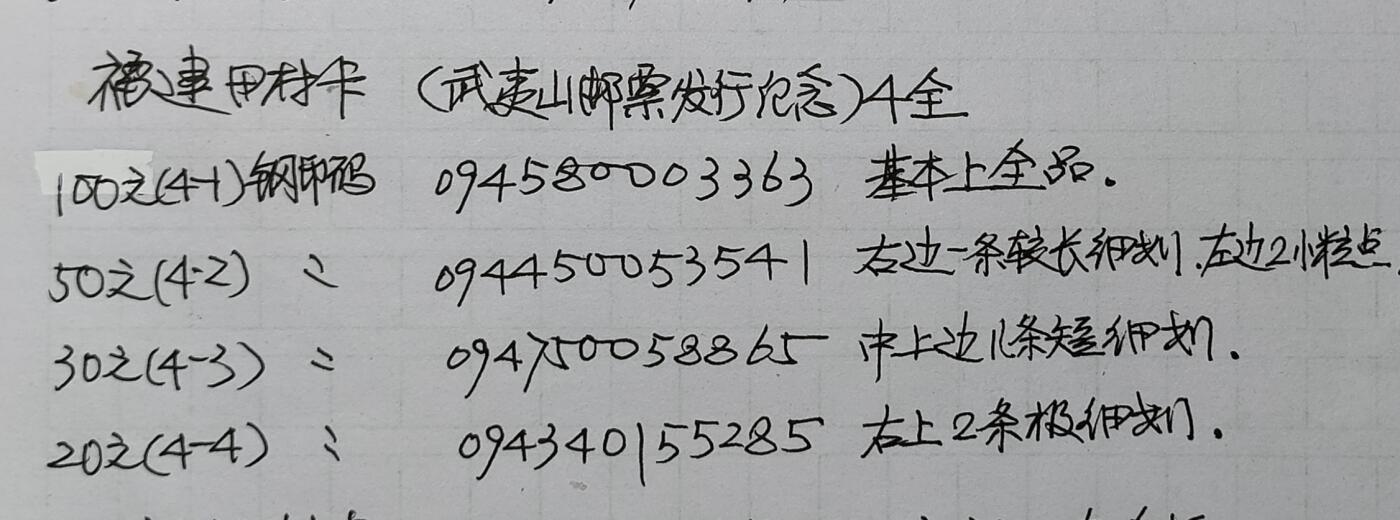 福建田村卡 (武夷山邮票发行纪念)4全
100元(4-1)钢印码 094580003363 基本上全品.
50元(4-2) 〃 094450053541 右边一条较长细划.左边2小粒点
30元(4-3) 〃 094750058865 中上边几条短细划.
20元(4-4) 〃 094340155285 右上2条极细划.